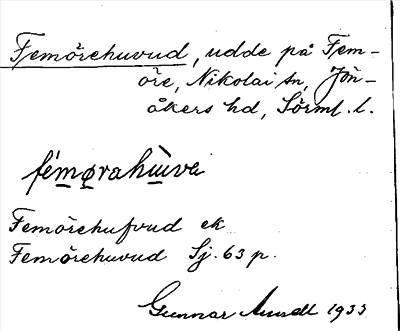 Femörehuvud, udde på Fem-
öre, Nikolai sn, Jön-
åkers hd, Sörml. l.
fémørahu̇va
Femörehufvud ek
Femörehuvud Sj. 63 p.
Gunnar 1933